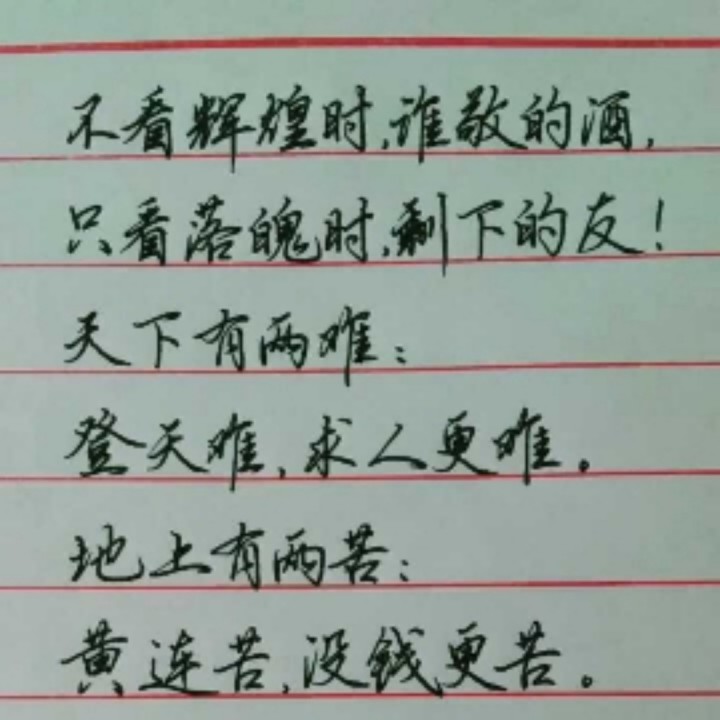 不看辉煌时,谁敬的酒,
只看落魄时,剩下的友!
天下有两难:
登天难,求人更难。
地上有两苦:
黄连苦,没钱更苦。